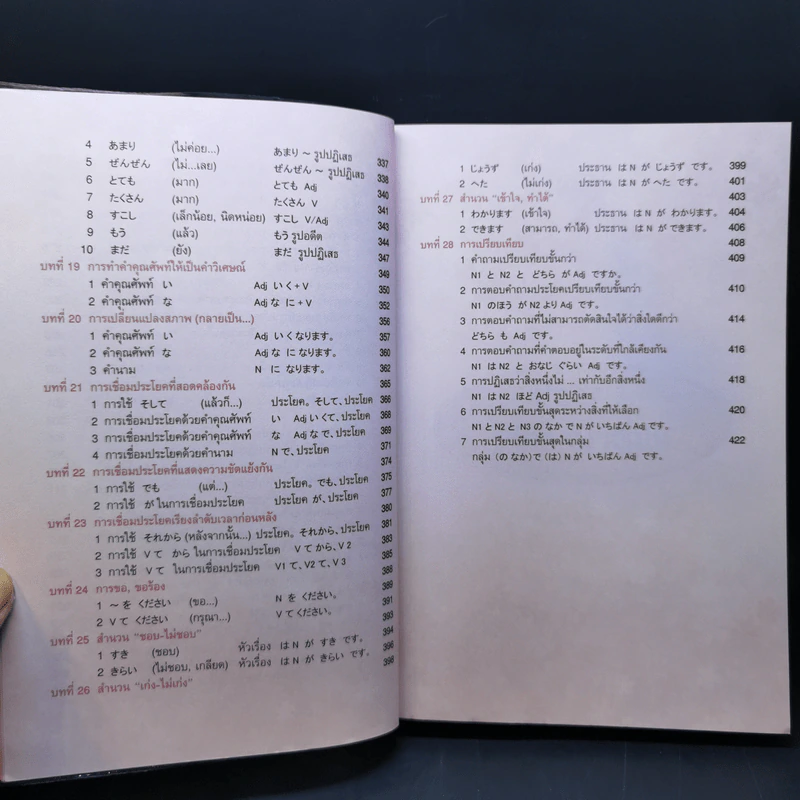 4 あまり (ไม่ค่อย...) あまり ~ รูปปฏิเสธ 337
5 ぜんぜん (ไม่...เลย) ぜんぜん ~ รูปปฏิเสธ 338
6 とても (มาก) とても Adj 340
7 たくさん (มาก) たくさん V 341
8 すこし (เล็กน้อย, นิดหน่อย) すこし V/Adj 343
9 もう (แล้ว) もう รูปอดีต 344
10 まだ (ยัง) まだ รูปปฏิเสธ 347
บทที่ 19 การทำคำคุณศัพท์ให้เป็นคำวิเศษณ์ 349
1 คำคุณศัพท์ い Adj いく + V 350
2 คำคุณศัพท์ な Adj な に + V 352
บทที่ 20 การเปลี่ยนแปลงสภาพ (กลายเป็น...) 356
1 คำคุณศัพท์ い Adj いくなります。 357
2 คำคุณศัพท์ な Adj な になります。 360
3 คำนาม N になります。 362
บทที่ 21 การเชื่อมประโยคที่สอดคล้องกัน 365
1 การใช้ そして (แล้วก็...) ประโยค。そして、ประโยค 366
2 การเชื่อมประโยคด้วยคำคุณศัพท์ い Adj いくて、ประโยค 368
3 การเชื่อมประโยคด้วยคำคุณศัพท์ な Adj な で、ประโยค 369
4 การเชื่อมประโยคด้วยคำนาม N で、ประโยค 371
บทที่ 22 การเชื่อมประโยคที่แสดงความขัดแย้งกัน 374
1 การใช้ でも (แต่...) ประโยค。でも、ประโยค 375
2 การใช้ が ในการเชื่อมประโยค ประโยค が、ประโยค 377
บทที่ 23 การเชื่อมประโยคเรียงลำดับเวลาก่อนหลัง 380
1 การใช้ それから (หลังจากนั้น...) ประโยค。それから、ประโยค 381
2 การใช้ V て から ในการเชื่อมประโยค V て から、V 2 383
3 การใช้ V て ในการเชื่อมประโยค V1 て、V2 て、V 3 385
บทที่ 24 การขอ, ขอร้อง 388
1 ~ を ください (ขอ...) N を ください。 389
2 V て ください (กรุณา...) V て ください。 391
บทที่ 25 สำนวน "ชอบ-ไม่ชอบ" 393
1 すき (ชอบ) หัวเรื่อง は N が すき です。 394
2 きらい (ไม่ชอบ, เกลียด) หัวเรื่อง は N が きらい です。 396
บทที่ 26 สำนวน "เก่ง-ไม่เก่ง" 398
1 じょうず (เก่ง) ประธาน は N が じょうず です。 399
2 へた (ไม่เก่ง) ประธาน は N が へた です。 401
บทที่ 27 สำนวน "เข้าใจ, ทำได้" 403
1 わかります (เข้าใจ) ประธาน は N が わかります。 404
2 できます (สามารถ, ทำได้) ประธาน は N が できます。 406
บทที่ 28 การเปรียบเทียบ 408
1 คำถามเปรียบเทียบขั้นกว่า 409
N1 と N2 と どちら が Adj ですか。
2 การตอบคำถามประโยคเปรียบเทียบขั้นกว่า 410
N1 のほう が N2 より Adj です。
3 การตอบคำถามที่ไม่สามารถตัดสินใจได้ว่าสิ่งใดดีกว่า 414
どちら も Adj です。
4 การตอบคำถามที่คำตอบอยู่ในระดับที่ใกล้เคียงกัน 416
N1 は N2 と おなじ ぐらい Adj です。
5 การปฏิเสธว่าสิ่งหนึ่งไม่ ... เท่ากับอีกสิ่งหนึ่ง 418
N1 は N2 ほど Adj รูปปฏิเสธ
6 การเปรียบเทียบขั้นสุดระหว่างสิ่งที่ให้เลือก 420
N1 と N2 と N3 の なか で N が いちばん Adj です。
7 การเปรียบเทียบขั้นสุดในกลุ่ม 422
กลุ่ม (の なか) で (は) N が いちばん Adj です。